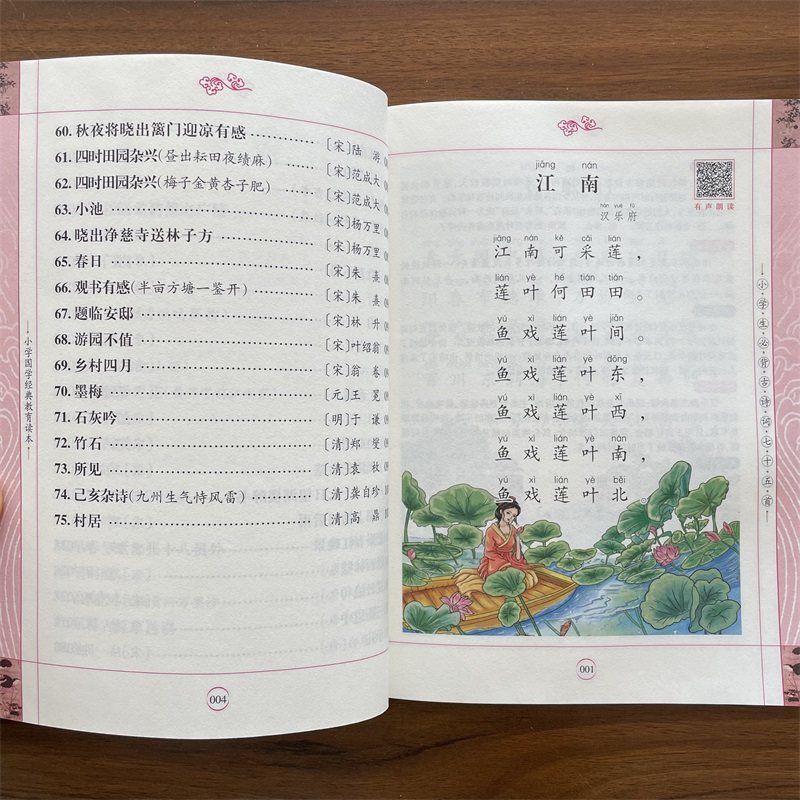 60. 秋夜将晓出篱门迎凉有感 〔宋〕陆 游
61. 四时田园杂兴(昼出耘田夜绩麻) 〔宋〕范成大
62. 四时田园杂兴(梅子金黄杏子肥) 〔宋〕范成大
63. 小池 〔宋〕杨万里
64. 晓出净慈寺送林子方 〔宋〕杨万里
65. 春日 〔宋〕朱 熹
66. 观书有感(半亩方塘一鉴开) 〔宋〕朱 熹
67. 题临安邸 〔宋〕林 升
68. 游园不值 〔宋〕叶绍翁
69. 乡村四月 〔宋〕翁 卷
70. 墨梅 〔元〕王 冕
71. 石灰吟 〔明〕于 谦
72. 竹石 〔清〕郑 燮
73. 所见 〔清〕袁 枚
74. 己亥杂诗(九州生气恃风雷) 〔清〕龚自珍
75. 村居 〔清〕高 鼎
小学国学经典教育读本
004
jiāng nán
江南
hàn yuè fǔ
汉乐府
有声朗读
jiāng nán kě cǎi lián
江南可采莲，
lián yè hé tián tián
莲叶何田田。
yú xì lián yè jiān
鱼戏莲叶间。
yú xì lián yè dōng
鱼戏莲叶东，
yú xì lián yè xī
鱼戏莲叶西，
yú xì lián yè nán
鱼戏莲叶南，
yú xì lián yè běi
鱼戏莲叶北。
小·学·生·必·背·古·诗·词·七·十·五·首
001